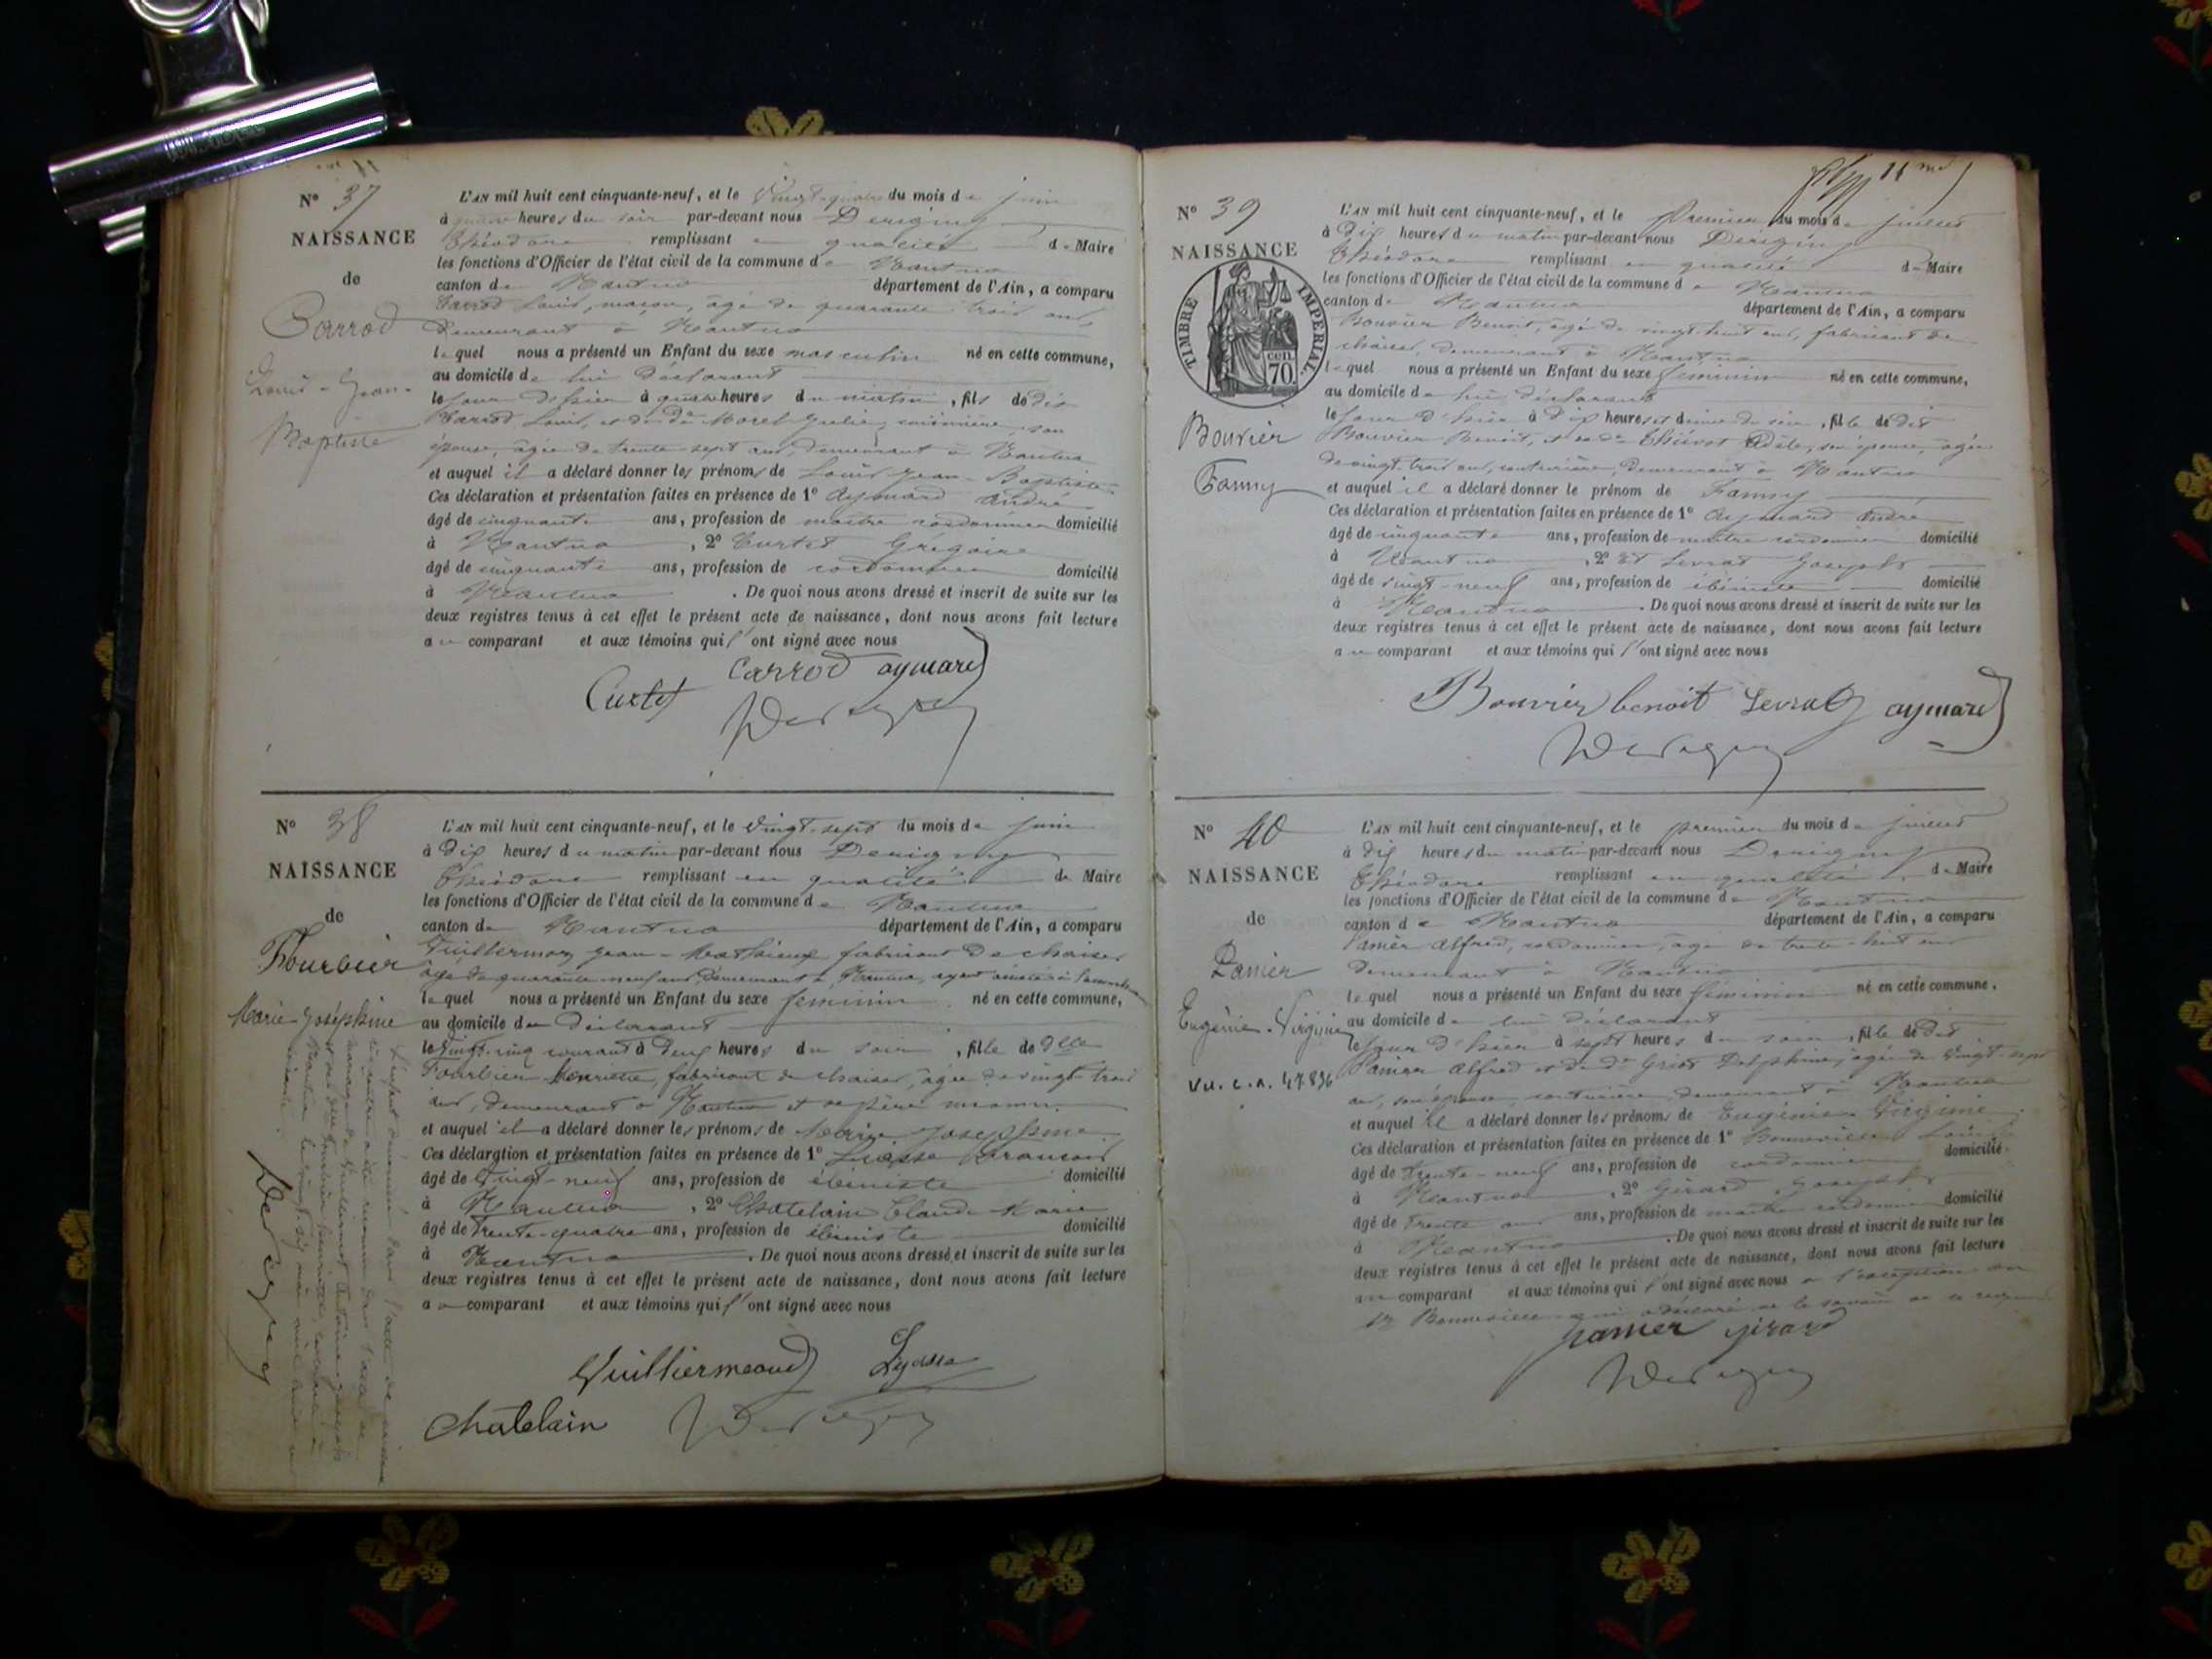 N° 37
NAISSANCE
de
Carrod
Louis-Jean-
Baptiste
L'AN mil huit cent cinquante-neuf, et le Vingt-quatre du mois de juin
à quatre heures du soir par-devant nous Derigny
Théodore remplissant en qualité de Maire
les fonctions d'Officier de l'état civil de la commune de Nantua
canton de Nantua département de l'Ain, a comparu
Carrod Louis, maçon, âgé de quarante trois ans,
demeurant à Nantua
lequel nous a présenté un Enfant du sexe masculin né en cette commune,
au domicile de lui déclarant
le jour d'hier à quatre heures du matin, fils de dit
Carrod Louis, et de de Morel Julie, cuisinière, son
épouse, âgée de trente sept ans, demeurant à Nantua
et auquel il a déclaré donner les prénoms de Louis Jean-Baptiste
Ces déclaration et présentation faites en présence de 1° Aymard André
âgé de cinquante ans, profession de maître cordonnier domicilié
à Nantua, 2° Curtet Grégoire
âgé de cinquante ans, profession de cordonnier domicilié
à Nantua. De quoi nous avons dressé et inscrit de suite sur les
deux registres tenus à cet effet le présent acte de naissance, dont nous avons fait lecture
au comparant et aux témoins qui l'ont signé avec nous
Carrod aymard
Curtet
Derigny
N° 38
NAISSANCE
de
Fourbier
Marie-Joséphine
L'AN mil huit cent cinquante-neuf, et le Vingt-sept du mois de juin
à dix heures du matin par-devant nous Derigny
Théodore remplissant en qualité de Maire
les fonctions d'Officier de l'état civil de la commune de Nantua
canton de Nantua département de l'Ain, a comparu
Vuillermoz Jean-Mathieu fabricant de chaises
âgé de quarante neuf ans, demeurant à Nantua, ayant assisté à l'accouchement
lequel nous a présenté un Enfant du sexe féminin né en cette commune,
au domicile du déclarant
le Vingt-cinq courant à deux heures du soir, fille de Dlle
Fourbier Henriette, fabricant de chaises, âgée de vingt trois
ans, demeurant à Nantua et de père inconnu
et auquel il a déclaré donner les prénoms de Marie Joséphine
Ces déclaration et présentation faites en présence de 1° François
âgé de Vingt-neuf ans, profession de ébéniste domicilié
à Nantua, 2° Chatelain Claude Marie
âgé de Trente-quatre ans, profession de ébéniste domicilié
à Nantua. De quoi nous avons dressé et inscrit de suite sur les
deux registres tenus à cet effet le présent acte de naissance, dont nous avons fait lecture
au comparant et aux témoins qui l'ont signé avec nous
Chatelain Derigny
L'enfant dénommé dans l'acte de naissance
ci-contre a été reconnu dans l'acte de
mariage de Antoine-Joseph
Derigny
N° 39
NAISSANCE
TIMBRE IMPERIAL
cen.
70.
Bouvier
Fanny
L'AN mil huit cent cinquante-neuf, et le Premier du mois de juillet
à dix heures du matin par-devant nous Derigny
Théodore remplissant en qualité de Maire
les fonctions d'Officier de l'état civil de la commune de Nantua
canton de Nantua département de l'Ain, a comparu
Bouvier Benoit, âgé de vingt-huit ans, fabricant de
chaises, demeurant à Nantua
lequel nous a présenté un Enfant du sexe féminin né en cette commune,
au domicile de lui déclarant
le jour d'hier à dix heures et demie du soir, fille de dit
Bouvier Benoit, et de de Adèle, son épouse, âgée
de vingt trois ans, couturière, demeurant à Nantua
et auquel il a déclaré donner le prénom de Fanny
Ces déclaration et présentation faites en présence de 1° Aymard André
âgé de cinquante ans, profession de maître cordonnier domicilié
à Nantua, 2° Et Levrat Joseph
âgé de vingt-neuf ans, profession de ébéniste domicilié
à Nantua. De quoi nous avons dressé et inscrit de suite sur les
deux registres tenus à cet effet le présent acte de naissance, dont nous avons fait lecture
au comparant et aux témoins qui l'ont signé avec nous
Bouvier benoit Levrat aymard
Derigny
N° 40
NAISSANCE
de
Panier
Eugénie-Virginie
L'AN mil huit cent cinquante-neuf, et le premier du mois de juillet
à dix heures du matin par-devant nous Derigny
Théodore remplissant en qualité de Maire
les fonctions d'Officier de l'état civil de la commune de Nantua
canton de Nantua département de l'Ain, a comparu
Panier Alfred, cordonnier, âgé de trente-huit ans
demeurant à Nantua
lequel nous a présenté un Enfant du sexe féminin né en cette commune.
au domicile de lui déclarant
le jour d'hier à sept heures du soir, fille de dit
Panier Alfred et de de Delphine, âgée de vingt sept
ans, son épouse, couturière, demeurant à Nantua
et auquel il a déclaré donner les prénoms de Eugénie Virginie
Ces déclaration et présentation faites en présence de 1° Bonneville Louis
âgé de Trente-neuf ans, profession de cordonnier domicilié
à Nantua, 2° Girard Joseph
âgé de Trente ans ans, profession de maître cordonnier domicilié
à Nantua. De quoi nous avons dressé et inscrit de suite sur les
deux registres tenus à cet effet le présent acte de naissance, dont nous avons fait lecture
au comparant et aux témoins qui l'ont signé avec nous à l'exception du
Sr Bonneville qui a déclaré ne le savoir de ce requis
panier girard
Derigny